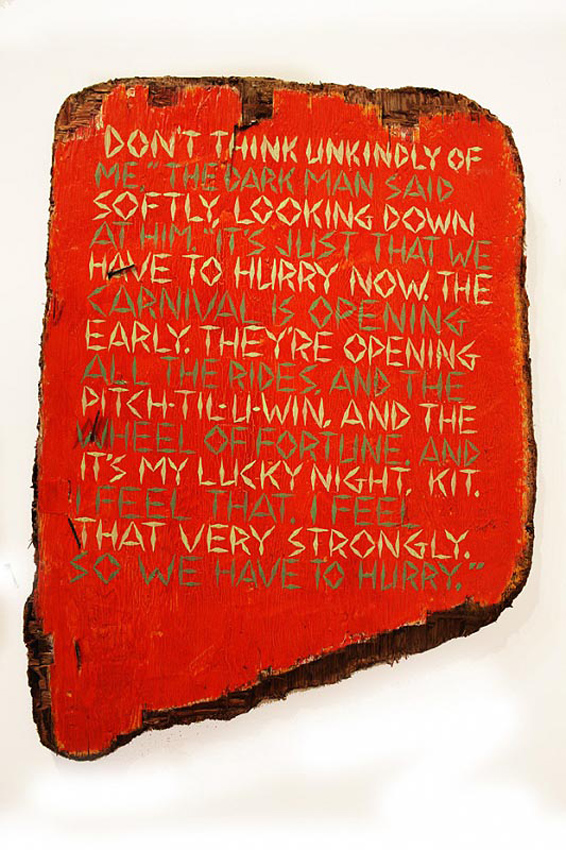 DON'T THINK UNKINDLY OF
ME," THE DARK MAN SAID
SOFTLY, LOOKING DOWN
AT HIM. "IT'S JUST THAT WE
HAVE TO HURRY NOW. THE
CARNIVAL IS OPENING
EARLY. THEY'RE OPENING
ALL THE RIDES, AND THE
PITCH-TIL-U-WIN, AND THE
WHEEL OF FORTUNE. AND
IT'S MY LUCKY NIGHT, KIT.
I FEEL THAT. I FEEL
THAT VERY STRONGLY.
SO WE HAVE TO HURRY."